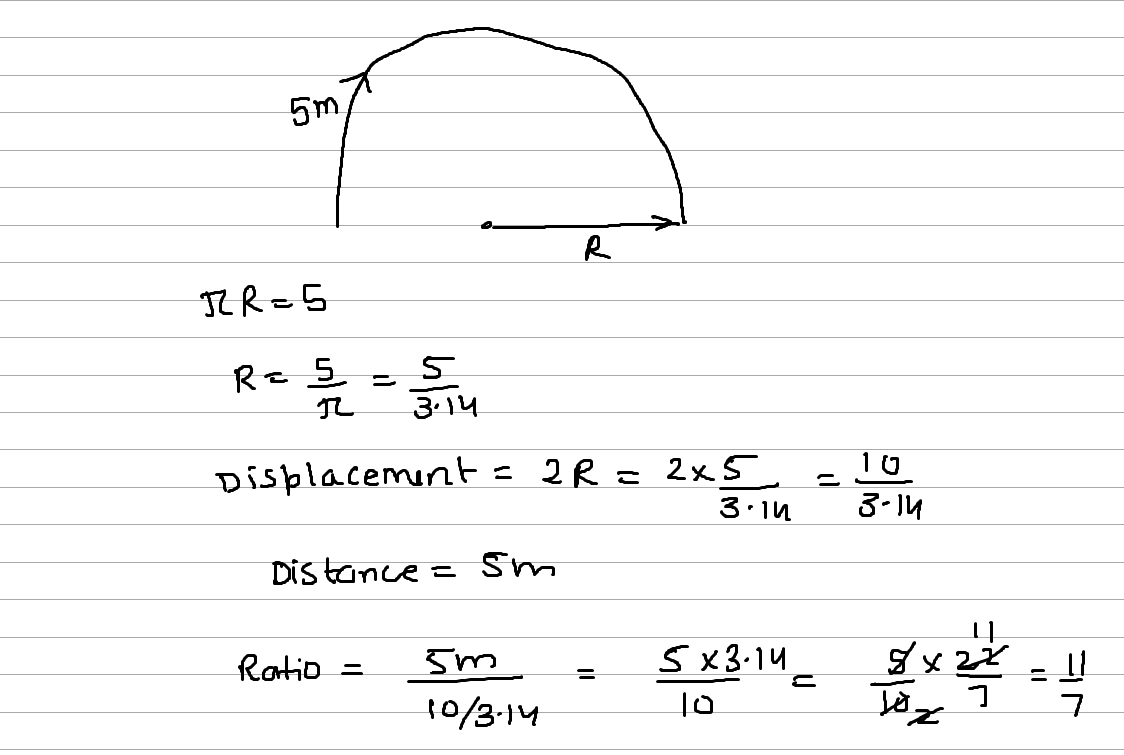 5m
R
πR = 5
R = 5/π = 5/3.14
Displacement = 2R = 2×5/3.14 = 10/3.14
Distance = 5m
Ratio = 5m/10/3.14 = 5×3.14/10 = 5×22/10 7 11 2 = 11/7